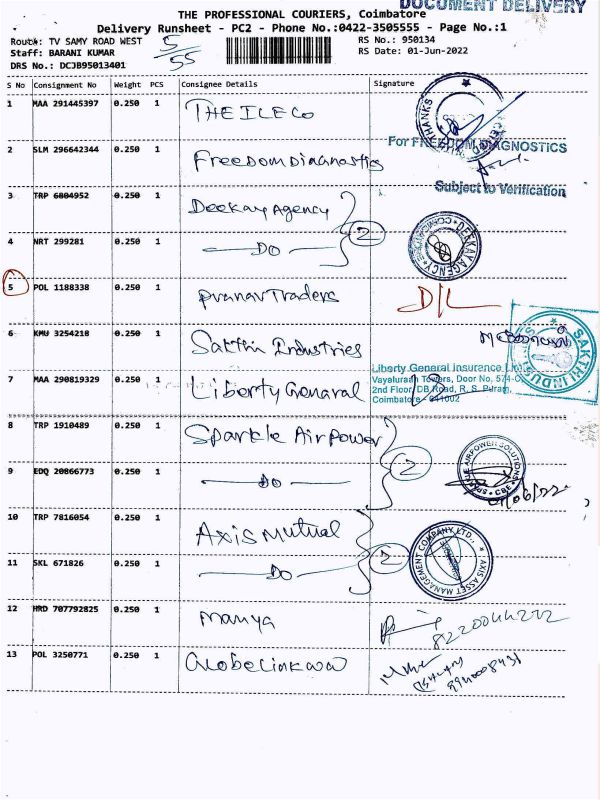 DOCUMENT DELIVERY
THE PROFESSIONAL COURIERS, Coimbatore
Delivery Runsheet - PC2 - Phone No.:0422-3505555 - Page No.:1
Route: TV SAMY ROAD WEST 5/55 RS No.: 950134
Staff: BARANI KUMAR RS Date: 01-Jun-2022
DRS No.: DCJB95013401
S No Consignment No Weight PCS Consignee Details Signature
1 MAA 291445397 0.250 1 THE ILECO
THANKS
For FREEDOM DIAGNOSTICS
2 SLM 296642344 0.250 1 Freedom Diagnostics
Subject to Verification
3 TRP 6804952 0.250 1 Deekay Agency
2
DEEKAY AGENCY COIMBATORE
4 NRT 299281 0.250 1 DO
5 POL 1188338 0.250 1 Pranav Traders D/L
6 KMU 3254218 0.250 1 Sakthi Industries
SAKTHI INDUS
7 MAA 290819329 0.250 1 Liberty Genaral
Liberty General Insurance
Vayaluraan Towers, Door No, 574-
2nd Floor, DB Road, R. S. Puram,
Coimbatore - 641002
8 TRP 1910489 0.250 1 Sparkle Air Power
2
SPARKLE AIRPOWER SOLUTIONS CBE
9 EDQ 20866773 0.250 1 DO
01/06/22
10 TRP 7816054 0.250 1 Axis Mutual
2
AXIS ASSET MANAGEMENT COMPANY LTD.
11 SKL 671826 0.250 1 DO
12 HRD 707792825 0.250 1 Manya
13 POL 3250771 0.250 1